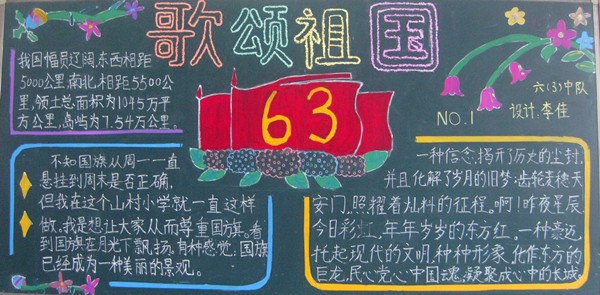 歌颂祖国
我国幅员辽阔,东西相距
5000公里,南北相距5500公
里,领土总面积为1045万平
方公里,岛屿为7.54万公里。
63
六(3)中队
NO.1 设计:李佳
不知国旗从周一一直
悬挂到周末是否正确,
但我在这个山村小学就一直这样
做。我是想让大家从而尊重国旗。看
到国旗在月光下飘扬,有种感觉:国旗
已经成为一种美丽的景观。
一种信念,揭开了历史的尘封,
并且化解了岁月的旧梦;齿轮麦穗天
安门,照耀着灿料的征程。啊!昨夜星辰
今日彩虹,年年岁岁的东方红。一种豪迈,
托起现代的文明,种种形象,化作东方的
巨龙,民心党心中国魂,凝聚成心中的长城。